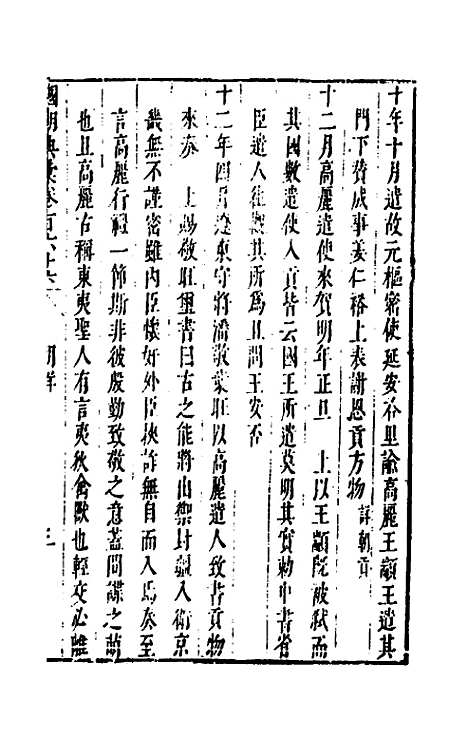 十年十月遣故元樞密使延安荅里諭高麗王顓王遣其
門下贊成事姜仁裕上表謝恩貢方物 詳朝貢
十二月高麗遣使來賀明年正旦 上以王顓既被弑而
其國數遣使入貢皆云國王所遣莫明其實勑中書省
臣遣人往觀其所為且問王安否
十二年四月遼東守將潘敬葉旺以高麗遣人致書貢物
來奏 上賜敬旺璽書曰古之能將出禦封疆入衛京
畿無不謹密雖內臣懷奸外臣挾詐無自而入焉奏至
言高麗行禮一節斯非彼殷勤致敬之意蓋間諜之萌
也且高麗古稱東夷聖人有言夷狄禽獸也輕交必離
國朝典彙卷百六十六 朝鮮 三